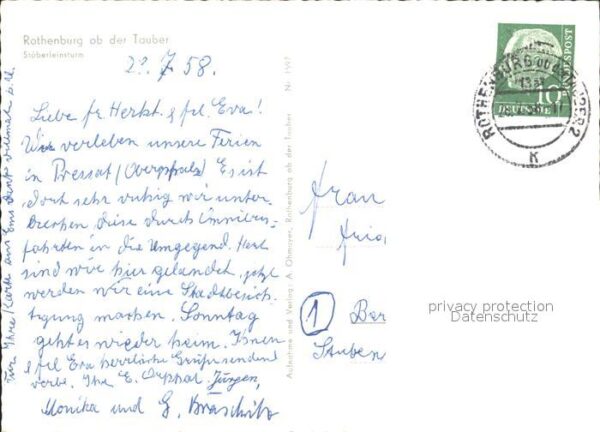 Rothenburg ob der Tauber
Stöberleinsturm
7 58.
Liebe fr. Herkt. & frl. Eva!
Wir verleben unsere Ferien
in Pressat / (Oberpfalz) Es ist
dort sehr ruhig wir unter-
brechen diese durch Omnibus-
fahrten in die Umgegend. Heut
sind wir hier gelandet, jetzt
werden wir eine Stadtbesich-
tigung machen. Sonntag
geht es wieder heim. Ihnen
& frl Eva herzliche Grüße sendend
verbl. Ihre E. Jürgen,
Monika und G.
für Ihre Karte aus Ems dank vielmal
Aufnahme und Verlag: A. Ohmayer, Rothenburg ob der Tauber Nr. 1997
Frau
1 Ber
Stuben
privacy protection
Datenschutz
DEUTSCHE BUNDESPOST
10
ROTHENBURG OB DER TAUBER 2
K